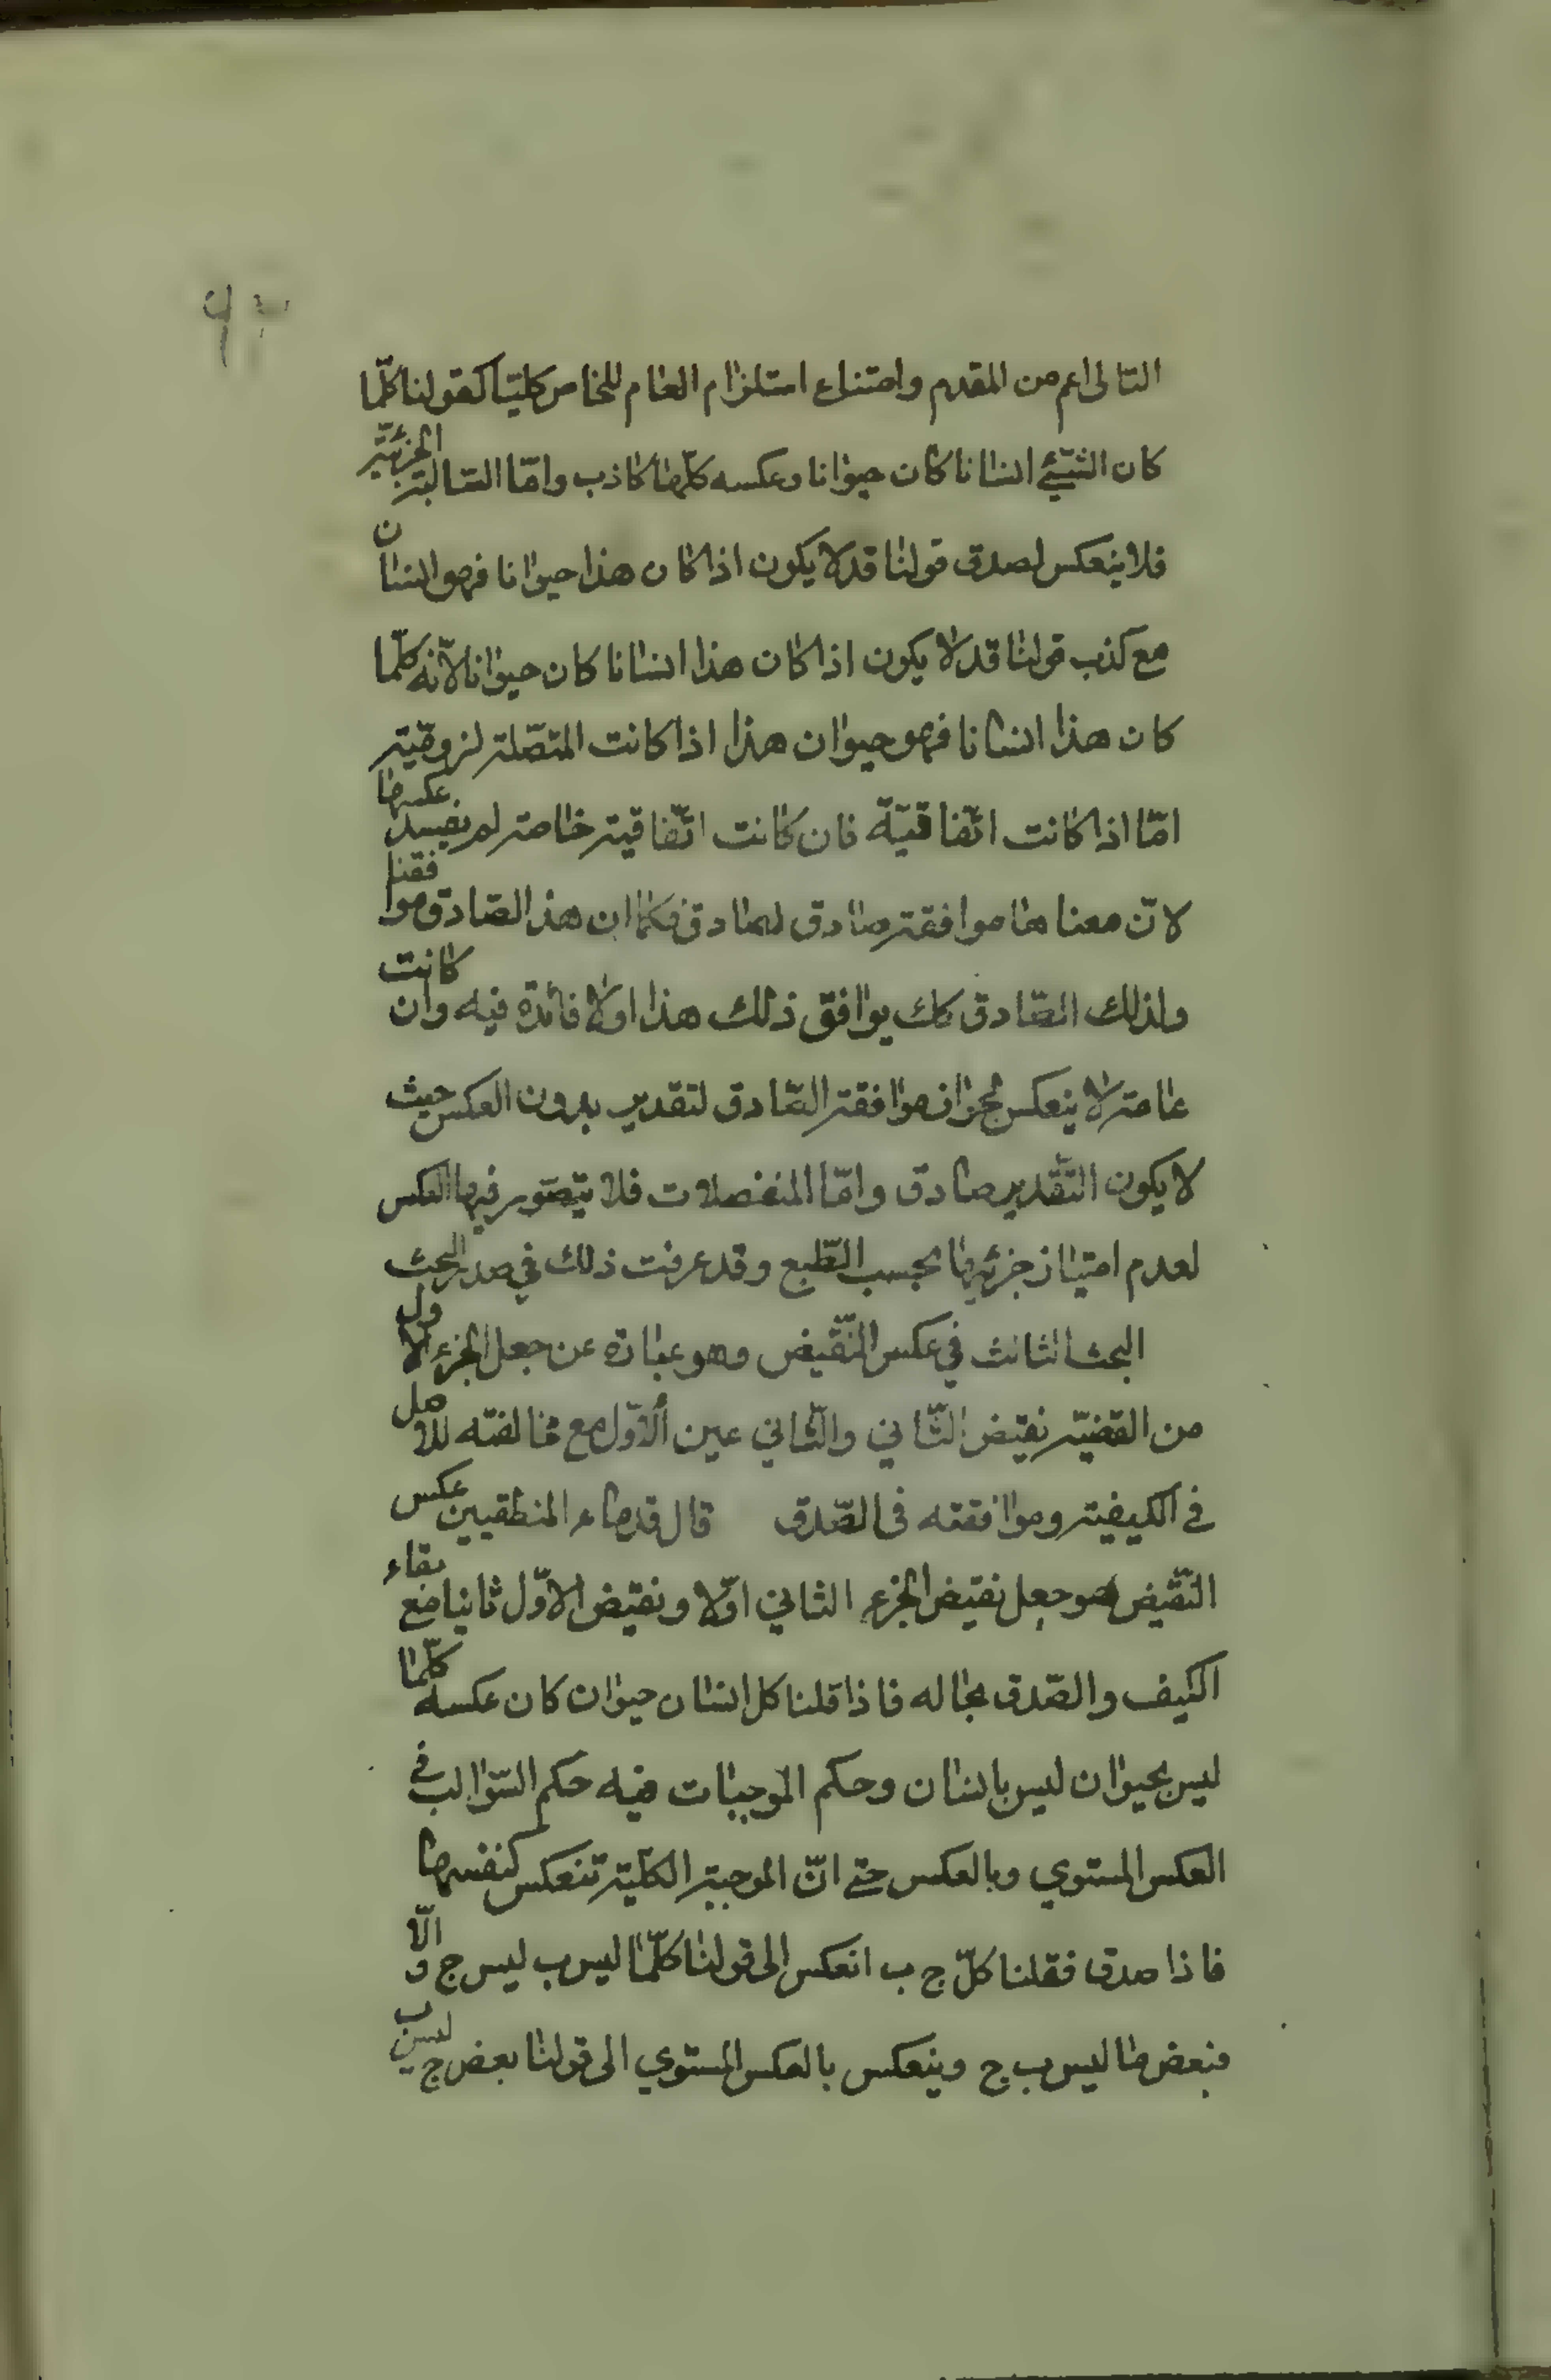 ٩٣
التالى اعم من المقدم وامتناع استلزام العام للخاص كليّا كقولنا كلّما
كان الشيئ انسانا كان حيوانا وعكسه كليّا كاذب وامّا السّالبة الجزئيّة
فلا ينعكس لصدق قولنا قد لا يكون اذا كان هذا حيوانا فهو انسان
مع كذب قولنا قد لا يكون اذا كان هذا انسانا كان حيوانا لانّه كلّما
كان هذا انسانا فهو حيوان هذا اذا كانت المتصّلة لزوميّة
امّا اذا كانت اتّفاقيّة فان كانت اتّفاقية خاصة لم يفيد عكسها
لانّ معناها موافقة صادق لصادق فكما ان هذا الصّادق موافقنا
ولذلك الصّادق كك يوافق ذلك هذا اولا فائدة فيه وان كانت
عامة لا ينعكس لجواز موافقة الصّادق لتقدير بدون العكس حيث
لا يكون التقدير صادق وامّا المنفصلات فلا يتصّور فيها العكس
لعدم امتياز جزئيها بحسب الطّبع وقد عرفت ذلك في صدر البحث
البحث الثالث في عكس النّقيض وهو عبارة عن جعل الجزء الاول
من القضيّة نقيض الثّاني والثّاني عين الاوّل مع مخالفته للاصل
في الكيفية وموافقته في الصّدق قال قدماء المنطقيين عكس
النّقيض هو جعل نقيض الجزء الثاني اوّلا ونقيض الاوّل ثانيا مع بقاء
الكيف والصّدق بحاله فاذا قلنا كل انسان حيوان كان عكسه كلّما
ليس بحيوان ليس بانسان وحكم الموجبات فيه حكم السّوالب في
العكس المستوي وبالعكس حتى انّ الموجبة الكليّة تنعكس كنفسها
فاذا صدق فقلنا كلّ ج ب انعكس الى قولنا كلّما ليس ب ليس ج والّا
فبعض ما ليس ب ج وينعكس بالعكس المستوي الى قولنا بعض ج ليس ب